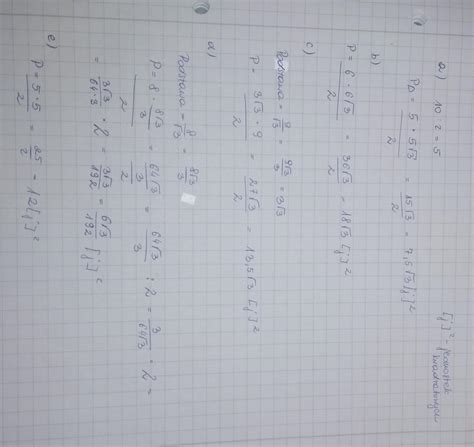 [j]² - jednostek
kwadratowych
a) 10 : 2 = 5
P△ = 5 · 5√3 / 2 = 15√3 / 2 = 7,5√3 [j]²
b)
P = 6 · 6√3 / 2 = 36√3 / 2 = 18√3 [j]²
c)
Podstawa = 9/√3 = 9√3/3 = 3√3
P = 3√3 · 9 / 2 = 27√3 / 2 = 13,5√3 [j]²
d)
Podstawa = 8/√3 = 8√3/3
P = 8 · 8√3/3 / 2 = 64√3/3 / 2 = 64√3/3 : 2 = 3/64√3 · 2 =
= 3√3/64·3 · 2 = 3√3/192 = 6√3/192 [j]²
e)
P = 5 · 5 / 2 = 25/2 = 12 [j]²